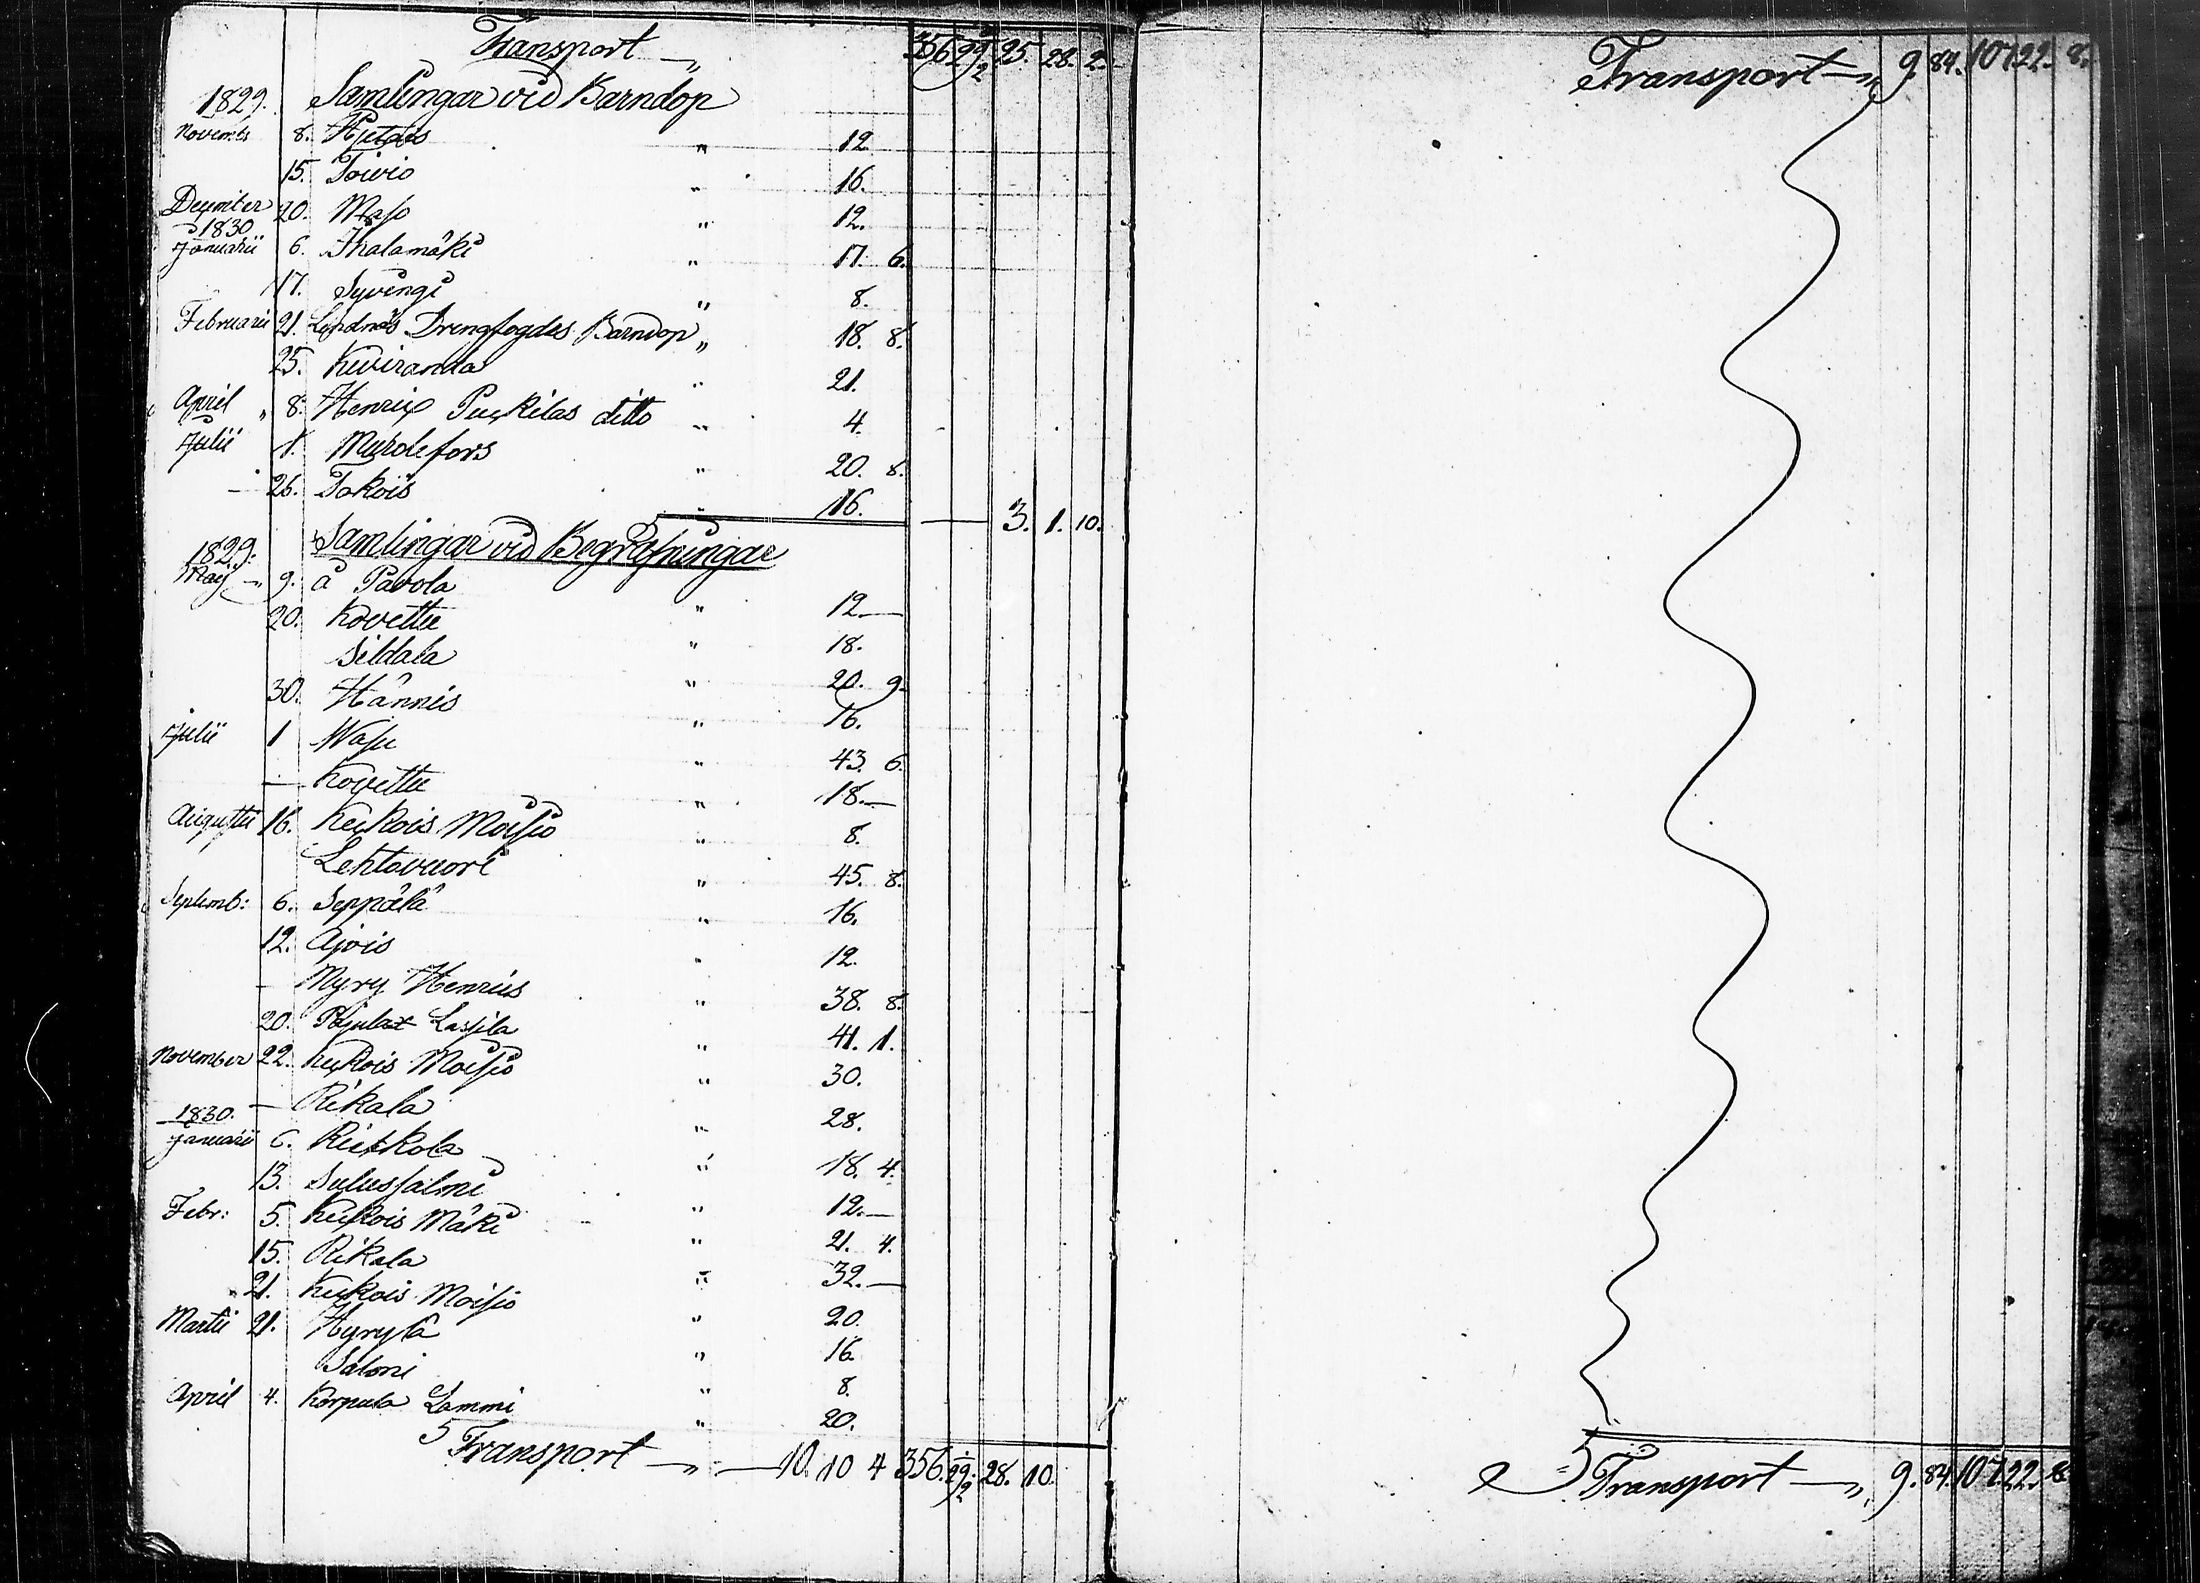 Transport — 356 29/2 25. 28. 2.
1829. Samlingar vid Barndop
Novembr 8. Hietais " 12
15. Toivio " 16.
December 20. Maso " 12.
1830
Januarii 6. Ihalamäki " 17. 6.
17. Syvingi " 8.
Februarii 21. Drengfogdes Barndop " 18. 8.
25. Kiviranda " 21.
April " 8. Henrix Puckilas ditto " 4.
Julii 1. Myrdefors " 20. 8.
— 26. Tokois " 16. — 3. 1. 10.
Samlingar vid Begrafningar
1829:
May — 9. å Pavola " 12 —
20. Kovettu " 18.
Sildala " 20. 9.
30. Hännis " 16.
Julii 1 Wasu " 43. 6.
— Kovettu " 18. —
Augustii 16. Kuckois Moisio " 8.
Lehtovuori " 45. 8.
Septemb: 6. Seppälä " 16.
12. Ajois " 12.
— Myry Henriis " 38. 8.
20. Lassila " 41. 1.
November 22. Kuckois Moisio " 30.
— Rikala " 28.
1830.
Januarii 6. Ruskola " 18. 4.
13. Sulussalmi " 12. —
Febr: 5. Kuckois Mäki " 21. 4.
15. Rikala " 32. —
21. Kuckois Moisio " 20.
Martii 21. Hyrylä " 16.
Saloni " 8.
April 4. Korpula Lammi " 20.
Transport — " — 10. 10 4 356. 29/2 28. 10.
Transport — " 9. 84. 107 22. 8.
Transport — " 9. 84. 107 22. 8.